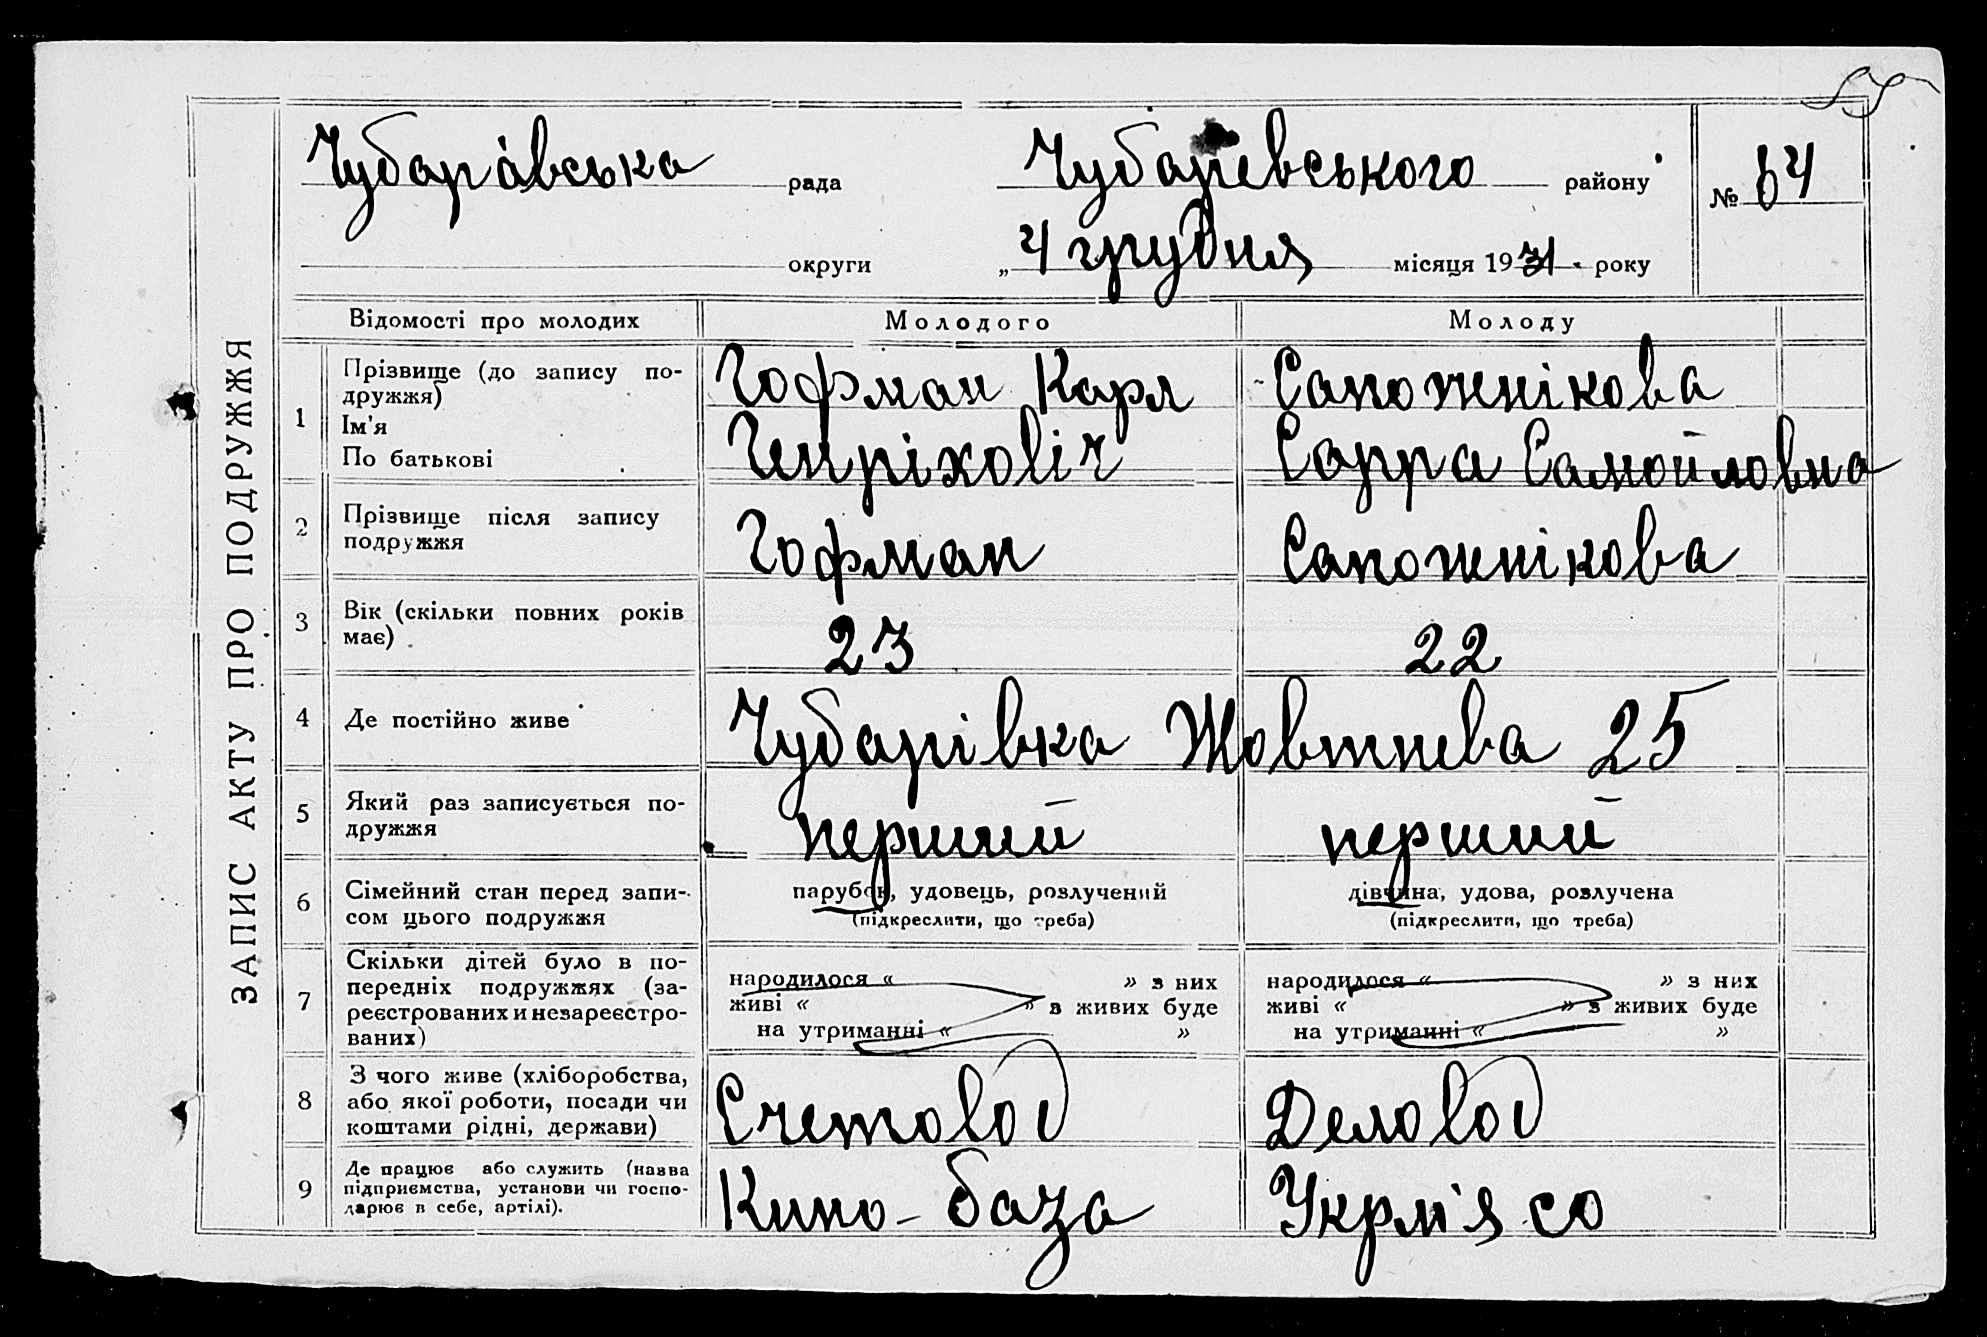 55
Чубарівська рада Чубарівського району № 64
округи „ 4 грудня місяця 1931 року
ЗАПИС АКТУ ПРО ПОДРУЖЖЯ
Відомості про молодих Молодого Молоду
1 Прізвище (до запису по-
дружжя)
Ім'я
По батькові
Гофман Карл
Генріховіч
Сапожнікова
Сарра Самойловна
2 Прізвище після запису
подружжя
Гофман Сапожнікова
3 Вік (скільки повних років
має)
23 22
4 Де постійно живе Чубарівка Жовтнева 25
5 Який раз записується по-
дружжя
перший перший
6 Сімейний стан перед запи-
сом цього подружжя
парубок, удовець, розлучений
(підкреслити, що треба)
дівчина, удова, розлучена
(підкреслити, що треба)
7 Скільки дітей було в по-
передніх подружжях (за-
реєстрованих и незареєстро-
ваних)
народилося « » з них
живі « » в живих буде
на утриманні « »
народилося « » з них
живі « » в живих буде
на утриманні « »
8 З чого живе (хліборобства,
або якої роботи, посади чи
коштами рідні, держави)
Счетовод Деловод
9 Де працює або служить (назва
підприємства, установи чи госпо-
дарює в себе, артілі).
Кино-база Укрм'ясо